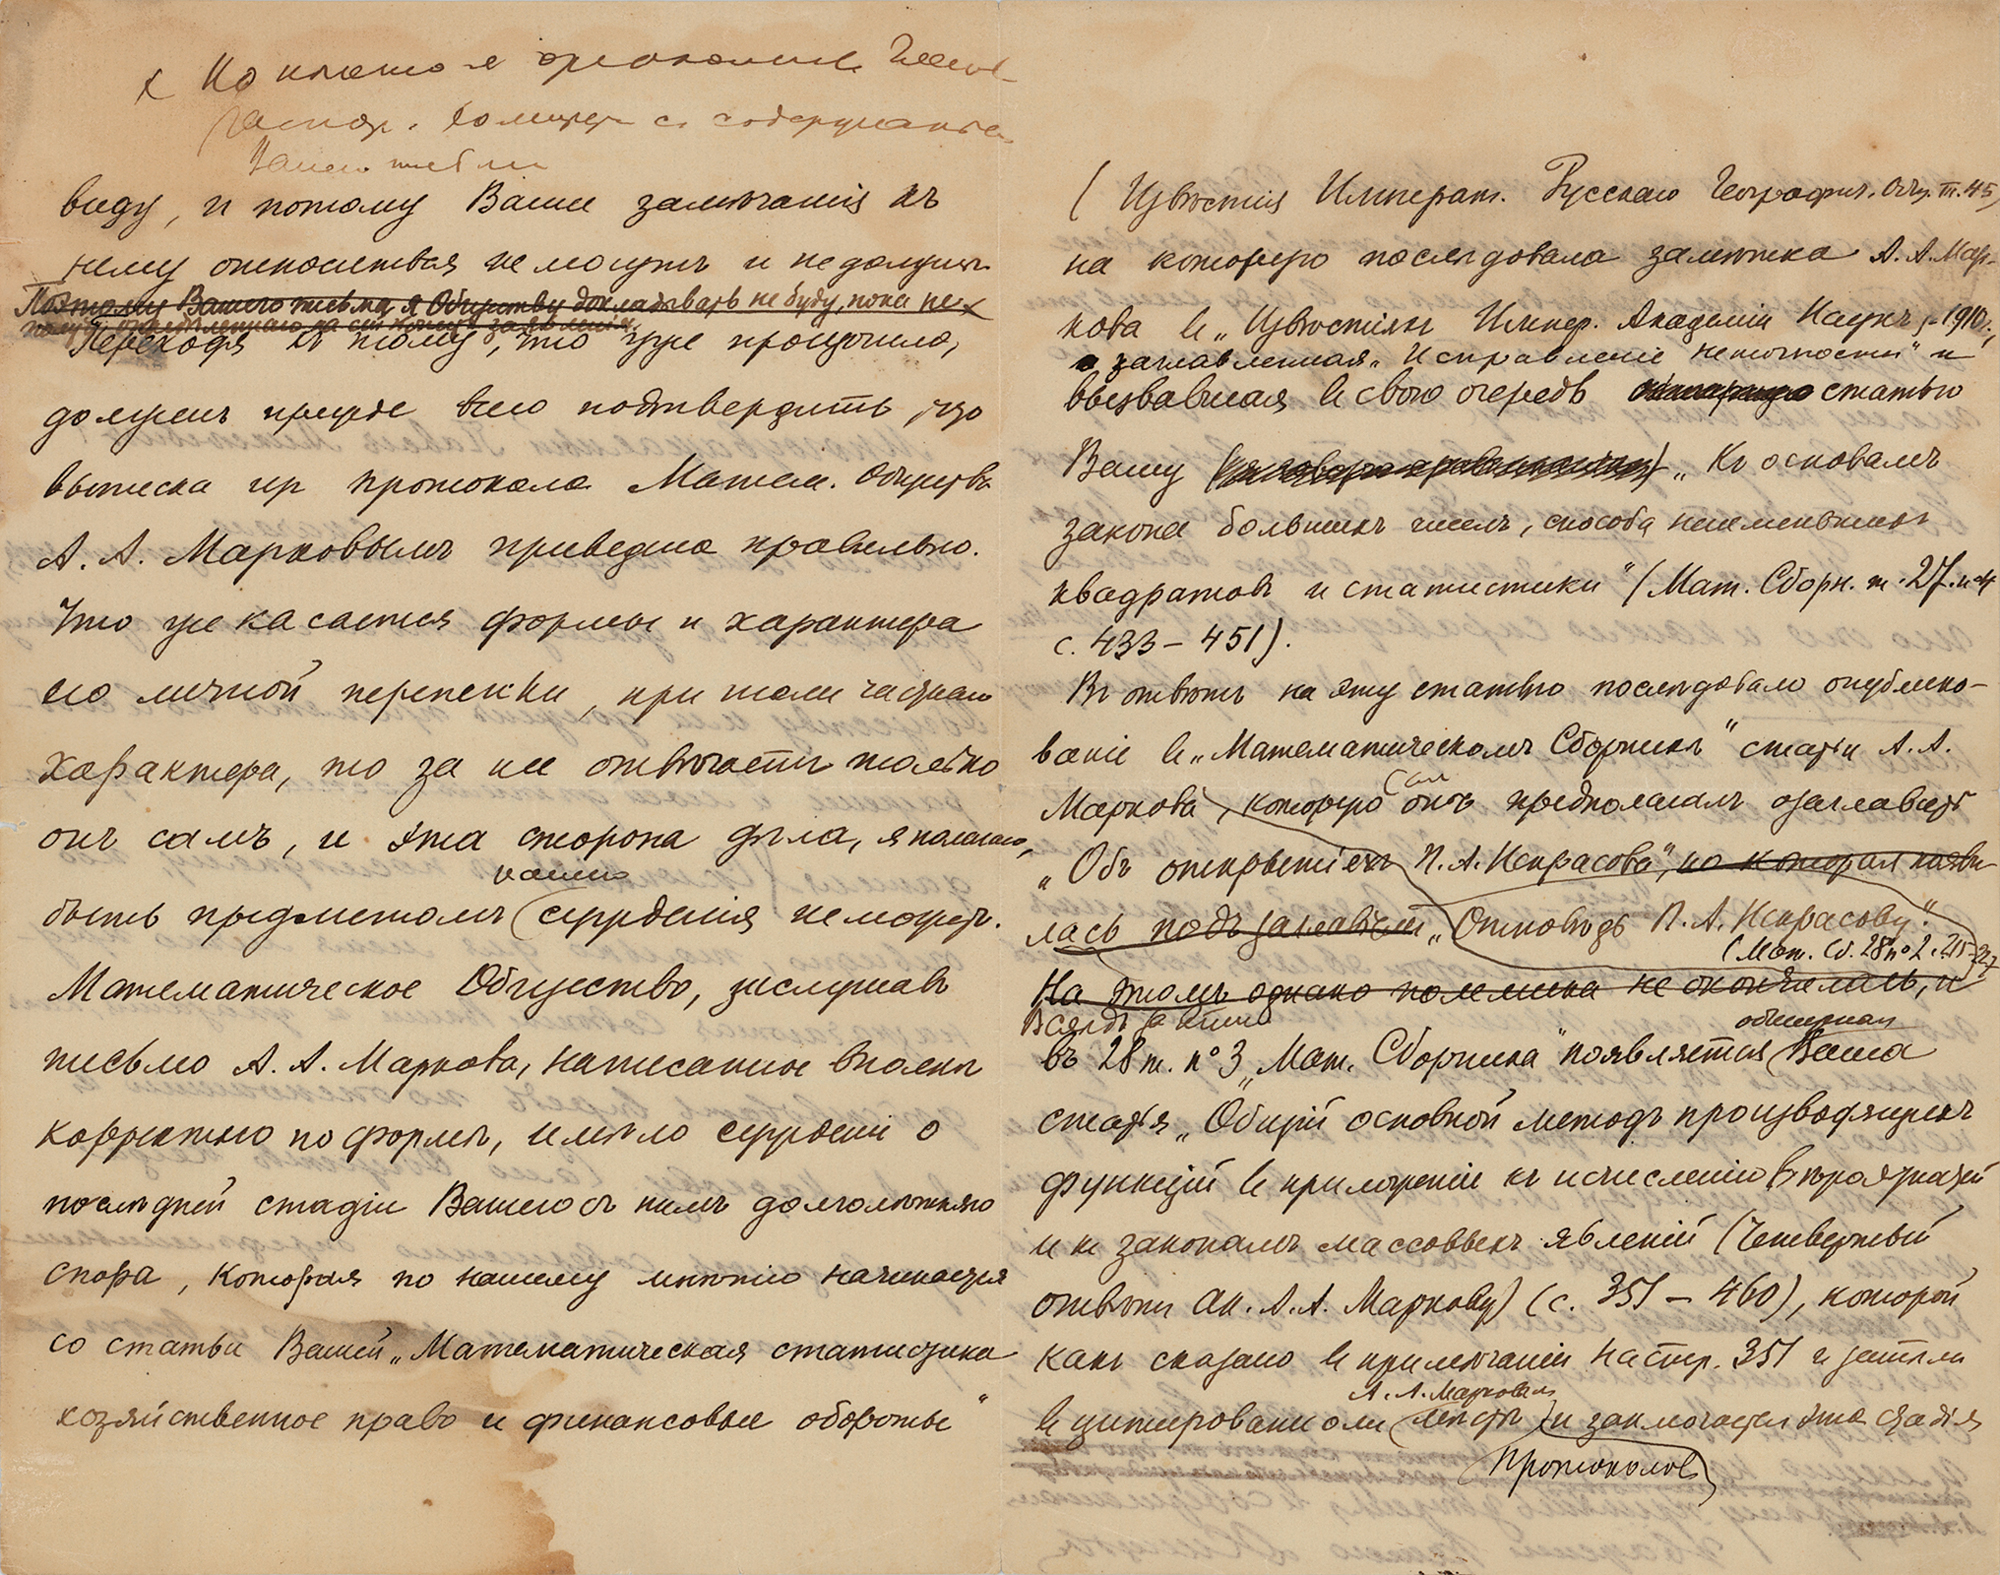 х Но
содержанием
Вашего письма
виду, и потому Ваши замѣчанія къ
нему относиться не могутъ и не должны.
Поэтому Вашего письма я Обществу докладывать не буду, пока не
Переходя къ тому, что уже прошло,
долженъ прежде всего подтвердить, что
выписка изъ протокола Матем. Общества
А. А. Марковымъ приведена правильно.
Что же касается формы и характера
его личной переписки, при томъ частнаго
характера, то за нее отвѣчаетъ только
онъ самъ, и эта сторона дѣла, я полагаю,
нашего
быть предметомъ сужденія не можетъ.
Математическое Общество, заслушавъ
письмо А. А. Маркова, написанное вполнѣ
корректно по формѣ, имѣло сужденіе о
послѣдней стадіи Вашего съ нимъ долголѣтняго
спора, которая по нашему мнѣнію начинается
со статьи Вашей „Математическая статистика
хозяйственное право и финансовые обороты"
(Извѣстія Императ. Русскаго Географич. Общ. т. 45)
на которую послѣдовала замѣтка А. А. Мар-
кова въ „Извѣстіяхъ Импер. Академіи Наукъ, 1910г.,
озаглавленная „Исправленіе неточности" и
вызвавшая въ свою очередь статью
Вашу „Къ основамъ
закона большихъ чиселъ, способа наименьшихъ
квадратовъ и статистики" (Мат. Сборн. т. 27. н. 4
с. 433 – 451).
Въ отвѣтъ на эту статью послѣдовало опублико-
ваніе въ „Математическомъ Сборникѣ" статьи А. А.
Маркова, которую онъ предполагалъ озаглавить
„Объ открытіяхъ П. А. Некрасова", но которая появи-
лась подъ заглавіемъ „Отповѣдь П. А. Некрасову".
(Мат. Сб. 28 н° 2. 215-227)
На этомъ однако полемика не окончилась, и
Вслѣдъ за тѣмъ
обширная
въ 28 т. н° 3 „Мат. Сборника" появляется Ваша
статья „Общій основной методъ производящихъ
функцій въ приложеніи къ исчисленію вѣроятностей
и къ законамъ массовыхъ явленій (Четвертый
отвѣтъ ак. А. А. Маркову) (с. 351 – 460), которой
какъ сказано въ примѣчаніи на стр. 351 и затѣмъ
А. А. Марковымъ
въ цитированномъ мѣстѣ и заключается эта стадія
протоколовъ